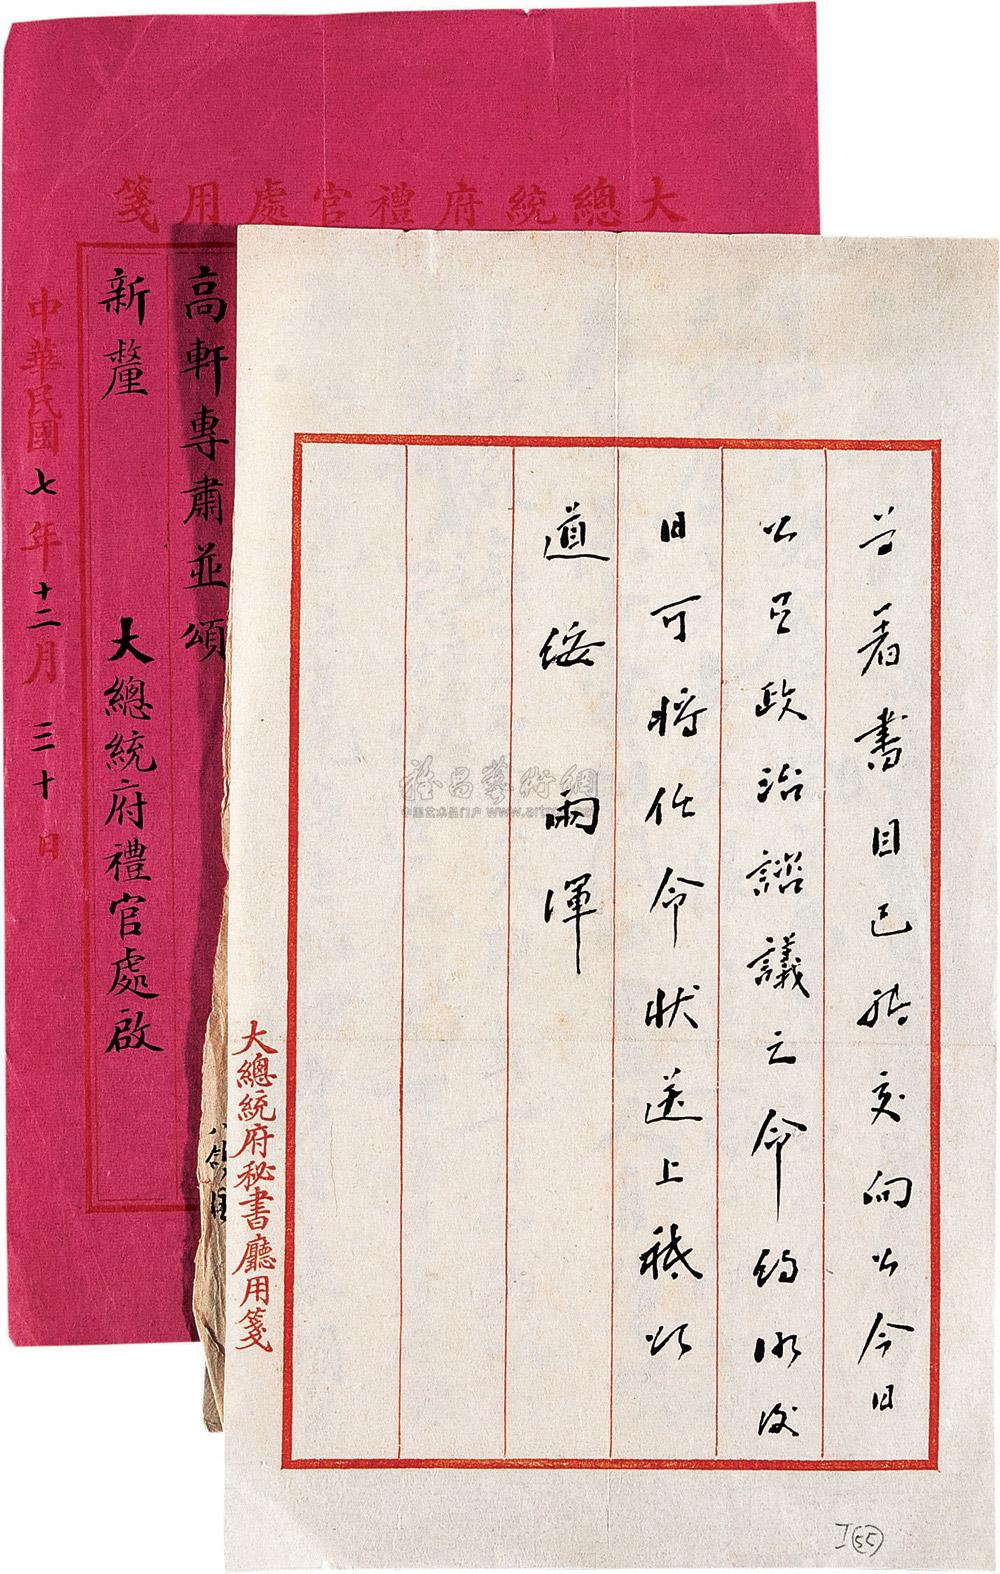 大總統府禮官處用箋
高軒專肅並頌
新釐 大總統府禮官處啟
中華民國七年十二月三十日
著書目已转交向公今日
政治諮議之命約明後
日可將任命狀送上祗
道綏 雨渾
大總統府秘書廳用箋
雅昌藝術網
中国艺术品门户
I 55